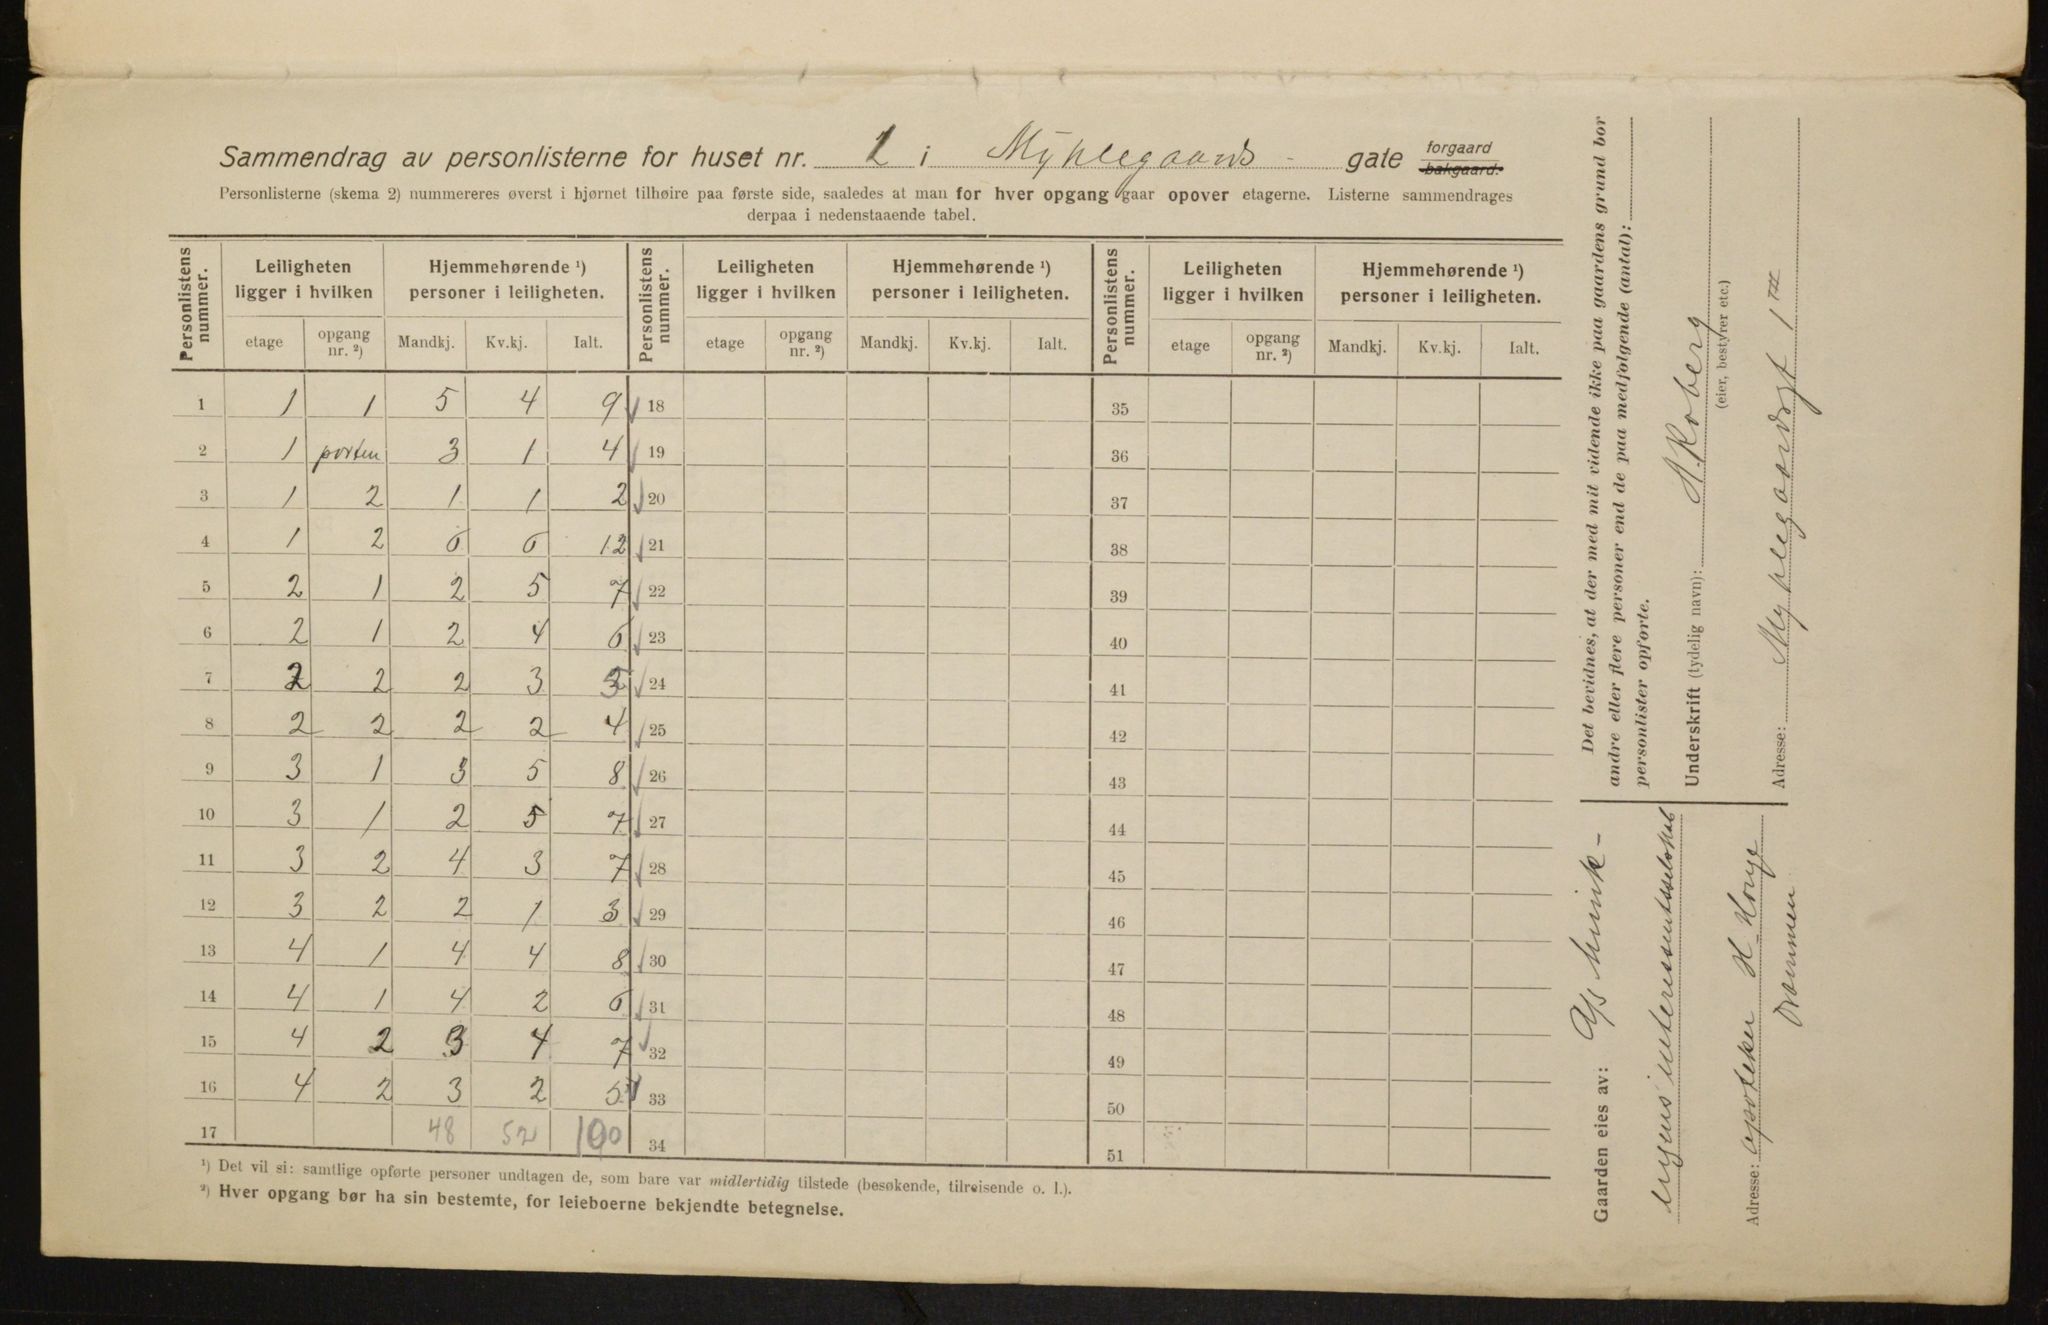 Sammendrag av personlisterne for huset nr. 1 i Myhlegaards - gate forgaard bakgaard.
Personlisterne (skema 2) nummereres øverst i hjørnet tilhøire paa første side, saaledes at man for hver opgang gaar opover etagerne. Listerne sammendrages
derpaa i nedenstaaende tabel.
Personlistens nummer. Leiligheten ligger i hvilken Hjemmehørende ¹) personer i leiligheten. Personlistens nummer. Leiligheten ligger i hvilken Hjemmehørende ¹) personer i leiligheten. Personlistens nummer. Leiligheten ligger i hvilken Hjemmehørende ¹) personer i leiligheten.
etage opgang nr. ²) Mandkj. Kv.kj. Ialt. etage opgang nr. ²) Mandkj. Kv.kj. Ialt. etage opgang nr. ²) Mandkj. Kv.kj. Ialt.
1 1 1 5 4 9 18 35
2 1 porten 3 1 4 19 36
3 1 2 1 1 2 20 37
4 1 2 6 6 12 21 38
5 2 1 2 5 7 22 39
6 2 1 2 4 6 23 40
7 2 2 2 3 5 24 41
8 2 2 2 2 4 25 42
9 3 1 3 5 8 26 43
10 3 1 2 5 7 27 44
11 3 2 4 3 7 28 45
12 3 2 2 1 3 29 46
13 4 1 4 4 8 30 47
14 4 1 4 2 6 31 48
15 4 2 3 4 7 32 49
16 4 2 3 2 5 33 50
17 48 52 100 34 51
¹) Det vil si: samtlige opførte personer undtagen de, som bare var midlertidig tilstede (besøkende, tilreisende o. l.).
²) Hver opgang bør ha sin bestemte, for leieboerne bekjendte betegnelse.
Det bevidnes, at der med mit vidende ikke paa gaardens grund bor
andre eller flere personer end de paa medfølgende (antal):
personlister opførte.
Underskrift (tydelig navn): Roberg
(eier, bestyrer etc.)
Adresse: Myhlegaardsgt 1
Gaarden eies av: A/s Munk-
interessentsselskab
Adresse: apoteker H
Drammen